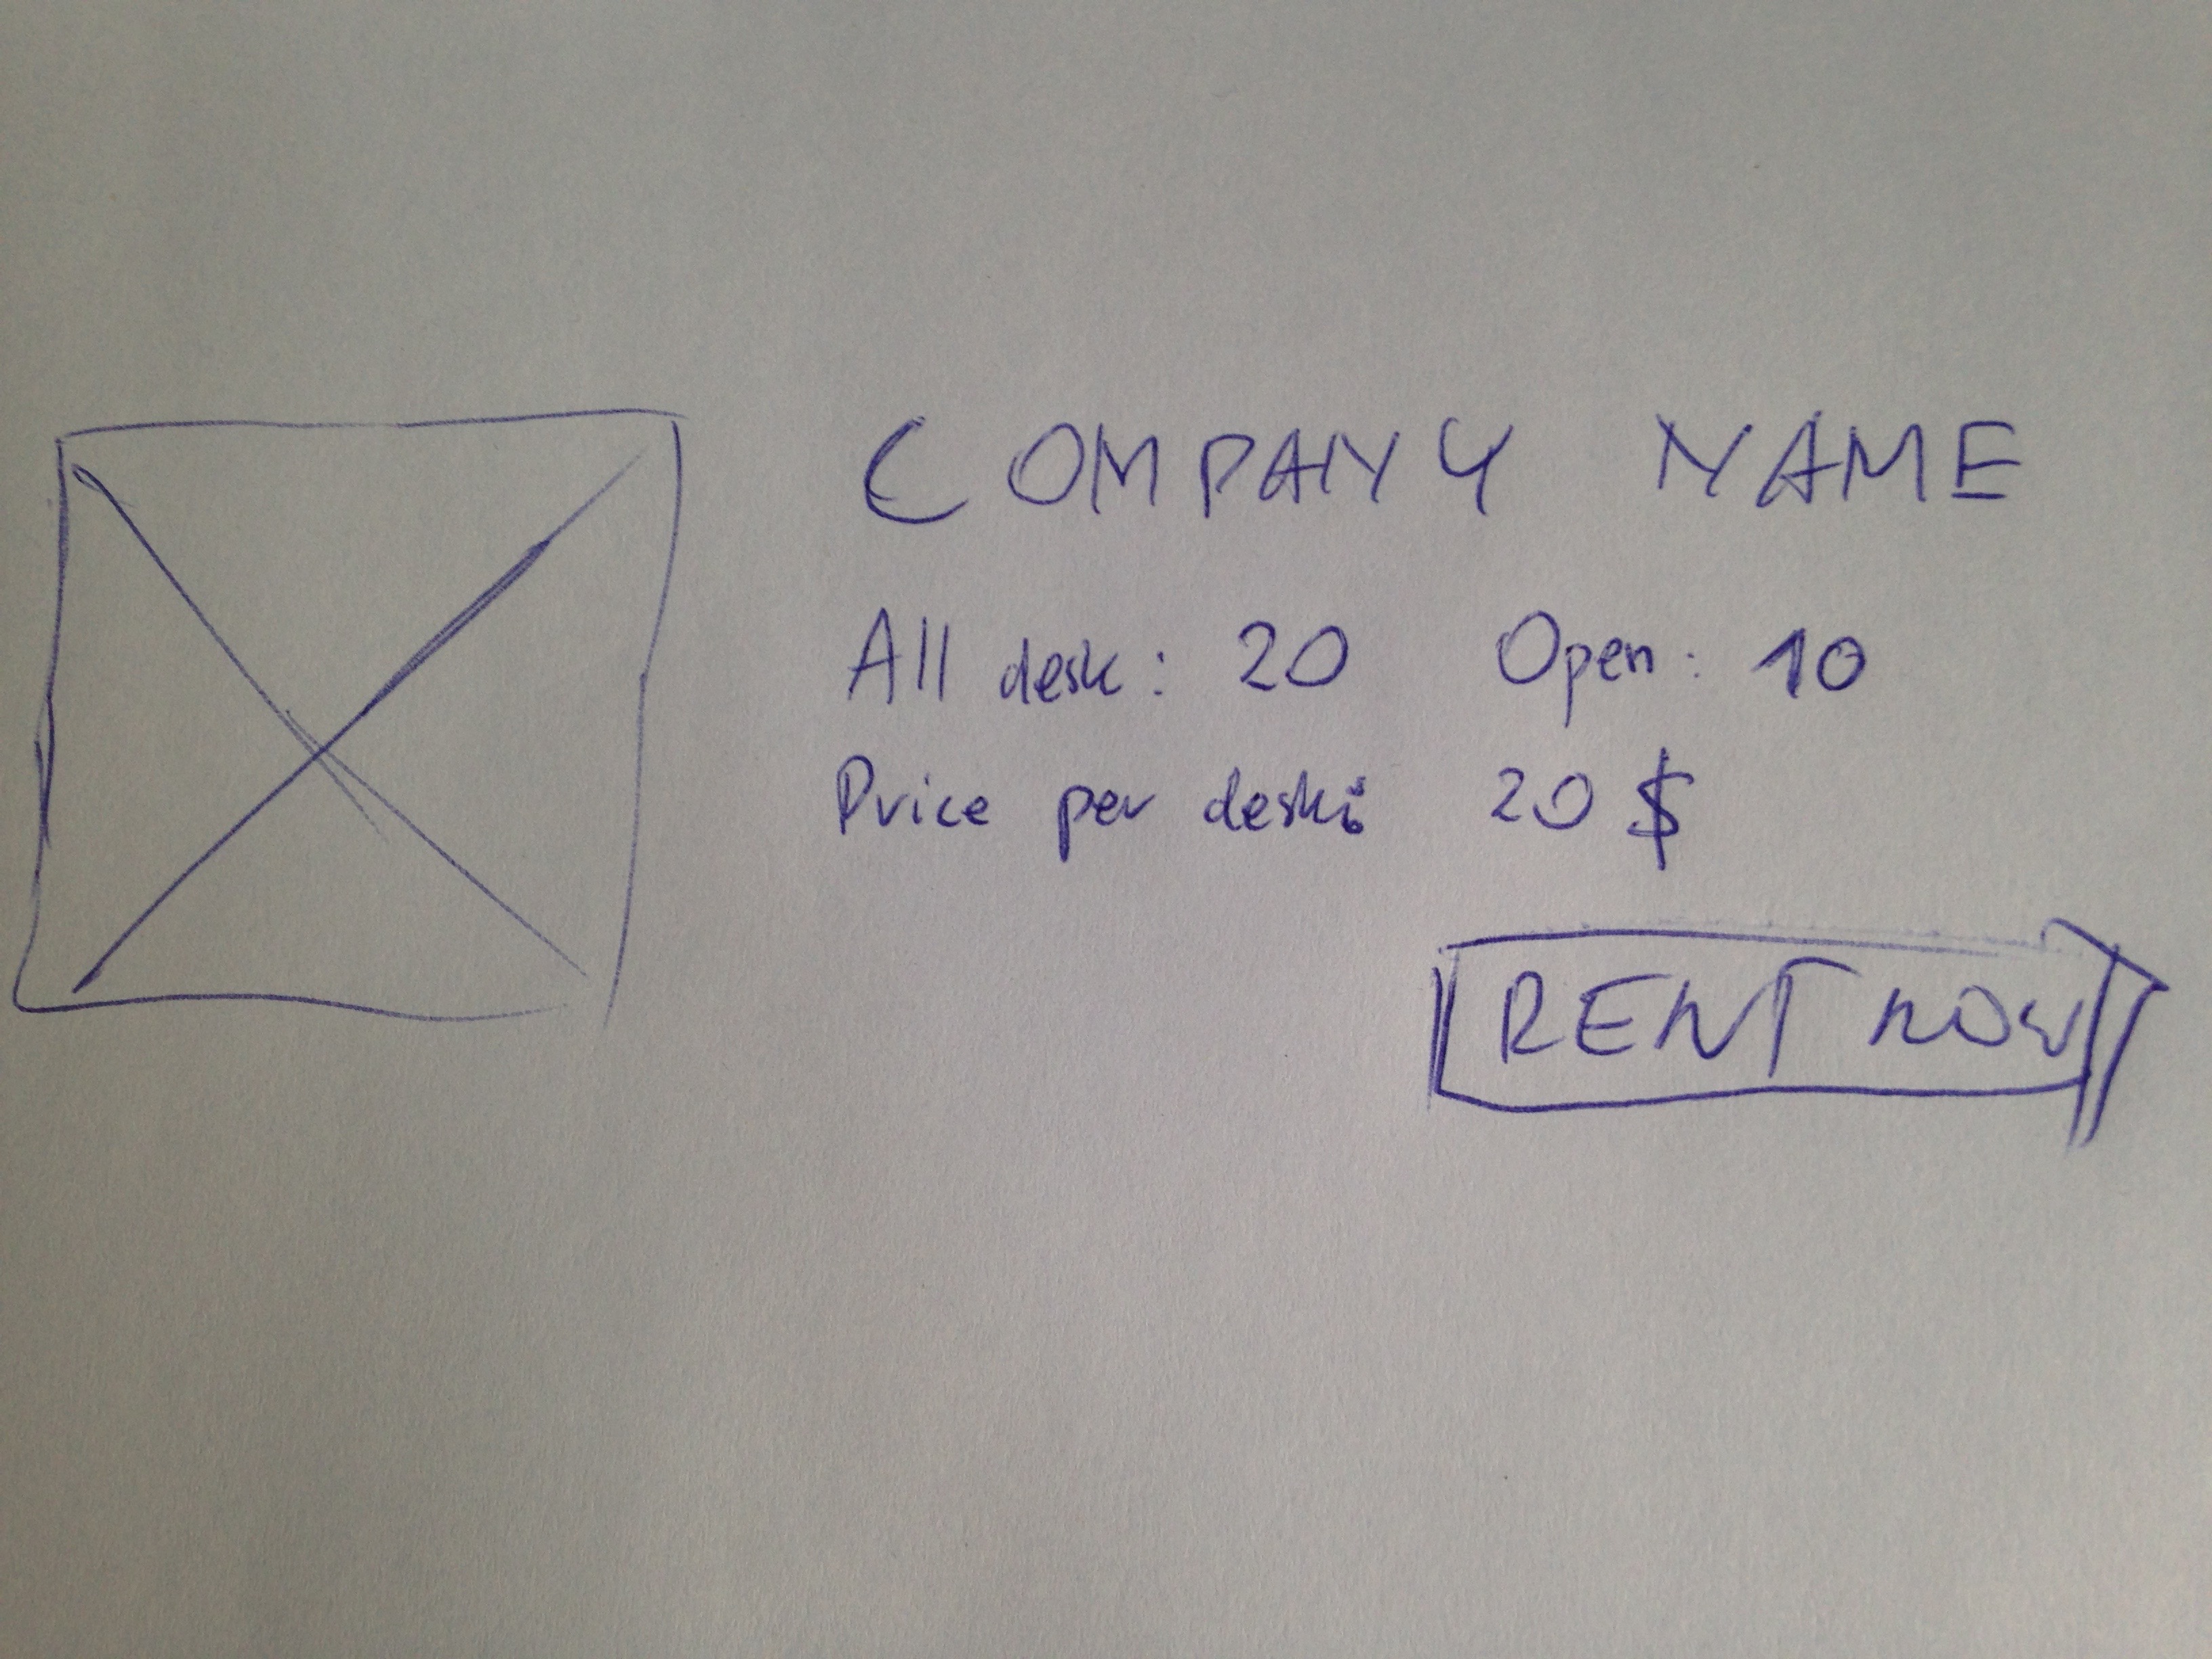 COMPANY NAME
All desk: 20 Open: 10
Price per desk: 20 $
RENT NOW